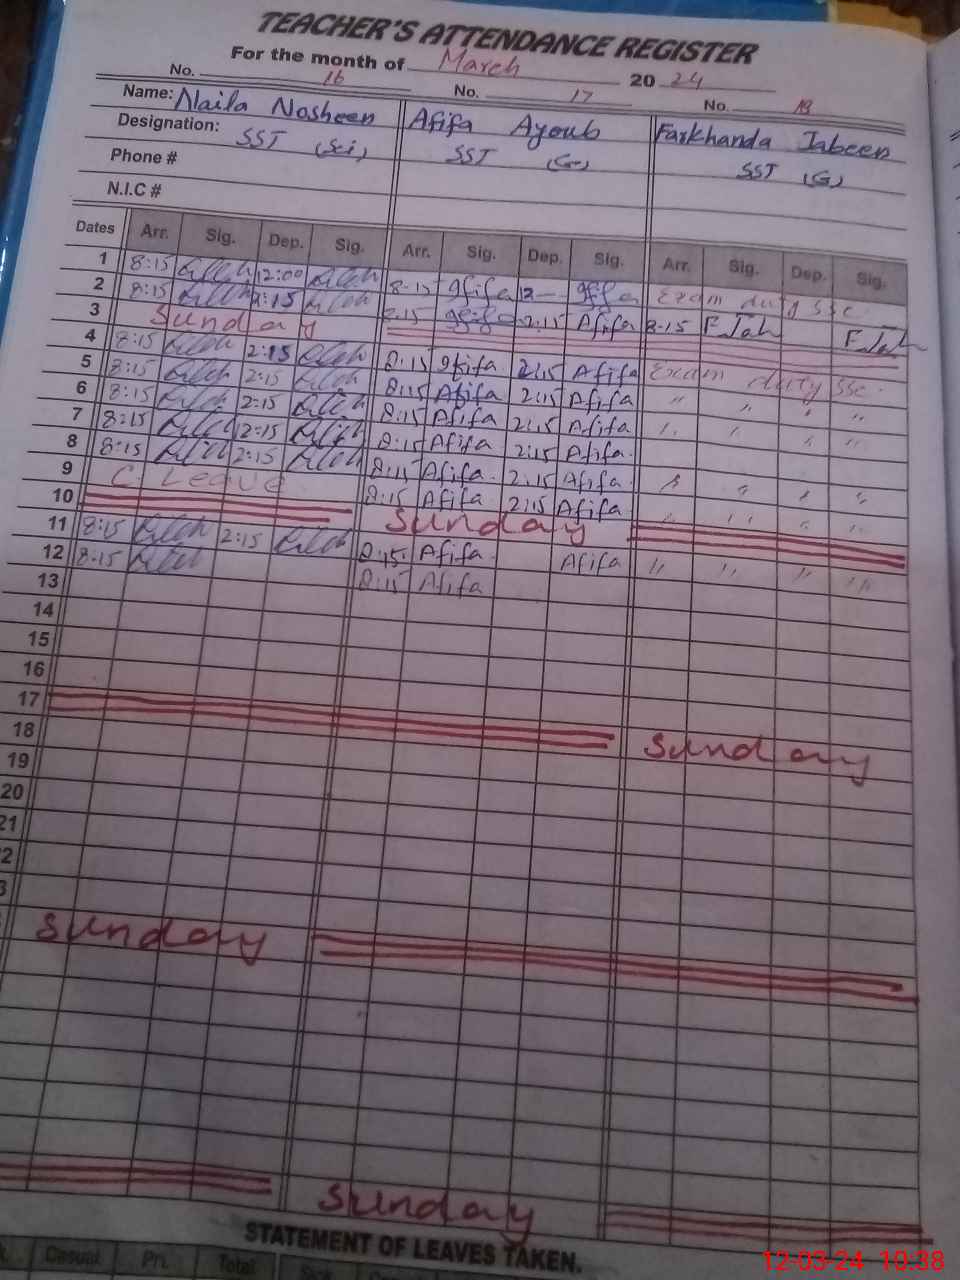 TEACHER'S ATTENDANCE REGISTER
For the month of March 2024
No. 16 No. 17 No. 18
Name: Naila Nosheen Afifa Ayoub Farkhanda Jabeen
Designation: SST (Sci) SST (G) SST (G)
Phone #
N.I.C #
Dates Arr. Sig. Dep. Sig. Arr. Sig. Dep. Sig. Arr. Sig. Dep. Sig.
1 8:15 12:00 8-15 Afifa 12 Afifa Exam duty SSC
2 8:15 2:15 8:15 Afifa 2:15 Afifa 8-15 F Jab F Jab
3 Sunday
4 8:15 2:15 8:15 Afifa 2:15 Afifa Exam duty SSC
5 8:15 2:15 8:15 Afifa 2:15 Afifa " " " "
6 8:15 2:15 8:15 Afifa 2:15 Afifa " " " "
7 8:15 2:15 8:15 Afifa 2:15 Afifa
8 8:15 2:15 8:15 Afifa 2:15 Afifa " " " "
9 C. Leave 8:15 Afifa 2:15 Afifa " " " "
10 Sunday
11 8:15 2:15 8:15 Afifa Afifa " " " "
12 8:15 8:15 Afifa
13
14
15
16
17 Sunday
18
19
20
21
Sunday
Sunday
STATEMENT OF LEAVES TAKEN.
Casual Pri. Total
12-03-24 10:38